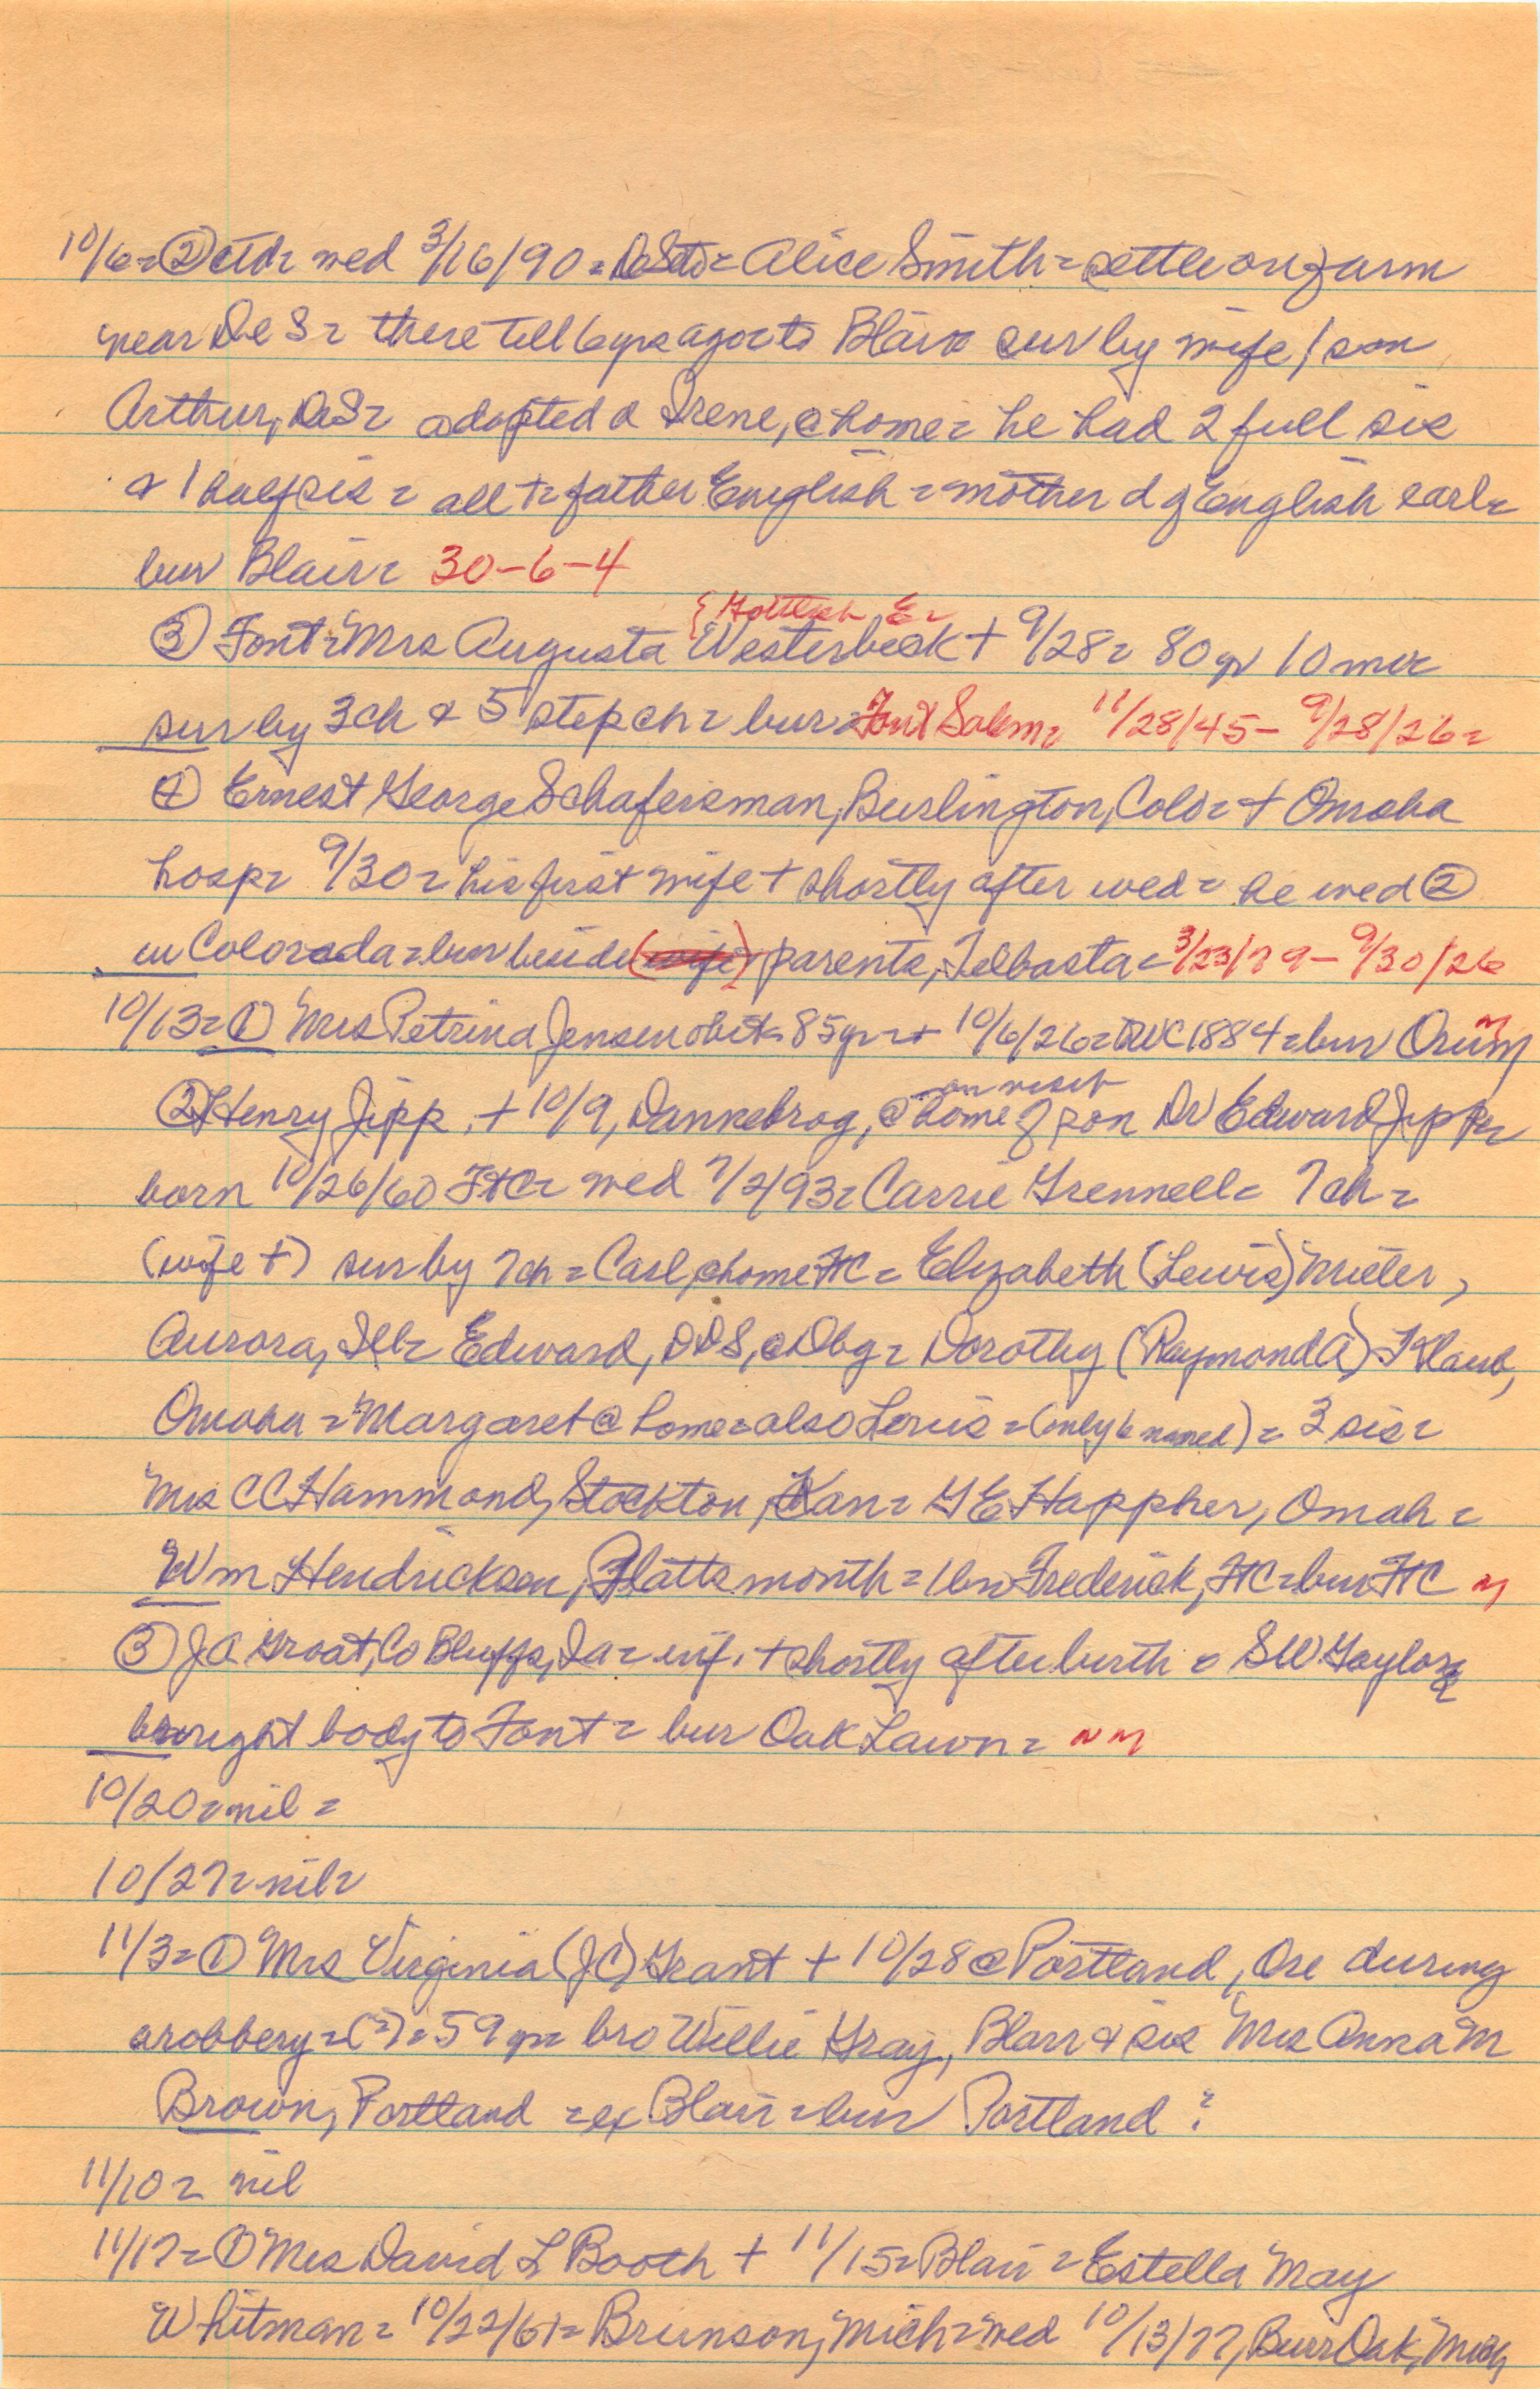 10/6 = ② ctd = wed 3/16/90 = DeSoto = Alice Smith = settle on farm
near De S = there till 6 yrs ago = to Blair = sur by wife 1 son
Arthur, DeS = adopted d Irene, @ home = he had 2 full sis
& 1 half sis = all + = father English = mother d of English earl =
bur Blair = 30-6-4
{Gottlieb E =
③ Font = Mrs Augusta Westerbeck + 9/28 = 80 yr 10 mo =
sur by 3 ch & 5 step ch = bur = Font Salem = 11/28/45 - 9/28/26 =
④ Ernest George Schafersman, Burlington, Colo = + Omaha
hosp = 9/30 = his first wife + shortly after wed = he wed ②
in Colorada = bur beside (wife) parents, Telbasta = 3/23/79 - 9/30/26
10/13 = ① Mrs Petrina Jensen obit = 85 yr = + 10/6/26 = WC 1884 = bur Orum
on visit
② Henry Jipp, + 10/9, Dannebrog, @ home of son Dr Edward Jipp =
born 10/26/60 FtC = wed 7/2/93 = Carrie Grennell = 7 ch =
(wife +) sur by 7 ch = Carl, @ home FtC = Elizabeth (Lewis) Miller,
Aurora, Ill = Edward, DDS, @ Dbg = Dorothy (Raymond A) Klaub,
Omaha = Margaret @ home = also Loris = (only 6 named) = 3 sis =
Mrs CC Hammond, Stockton, Kan = G E Happher, Omah =
Wm Hendricksen, Plattsmouth = 1 bro Frederick, FtC = bur FtC m
③ JA Groat, Co Bluffs, Ia = inf. + shortly after birth = SW Gaylord =
brought body to Font = bur Oak Lawn = nm
10/20 = nil =
10/27 = nil =
11/3 = ① Mrs Virginia (JC) Grant + 10/28 @ Portland, Ore during
a robbery = (?) = 59 yr = bro Willie Gray, Blair & sis Mrs Anna M
Brown, Portland = ex Blair = bur Portland ?
11/10 = nil
11/17 = ① Mrs David L Booth + 11/15 = Blair = Estella May
Whitman = 10/22/61 = Brunson, Mich = wed 10/13/77, Burr Oak, Mich,